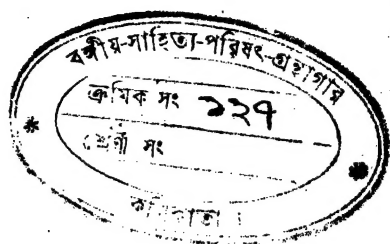 বঙ্গীয়-সাহিত্য-পরিষৎ-গ্রন্থাগার
ক্রমিক সং ১২৭
শ্রেণী সং
কলিকাতা ।